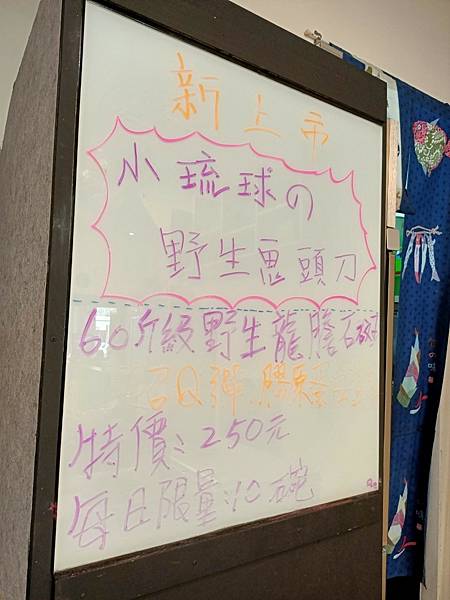 新上市
小琉球の
野生鬼頭刀
60斤級野生龍膽石斑
超Q彈 膠原
特價:250元
每日限量:10碗